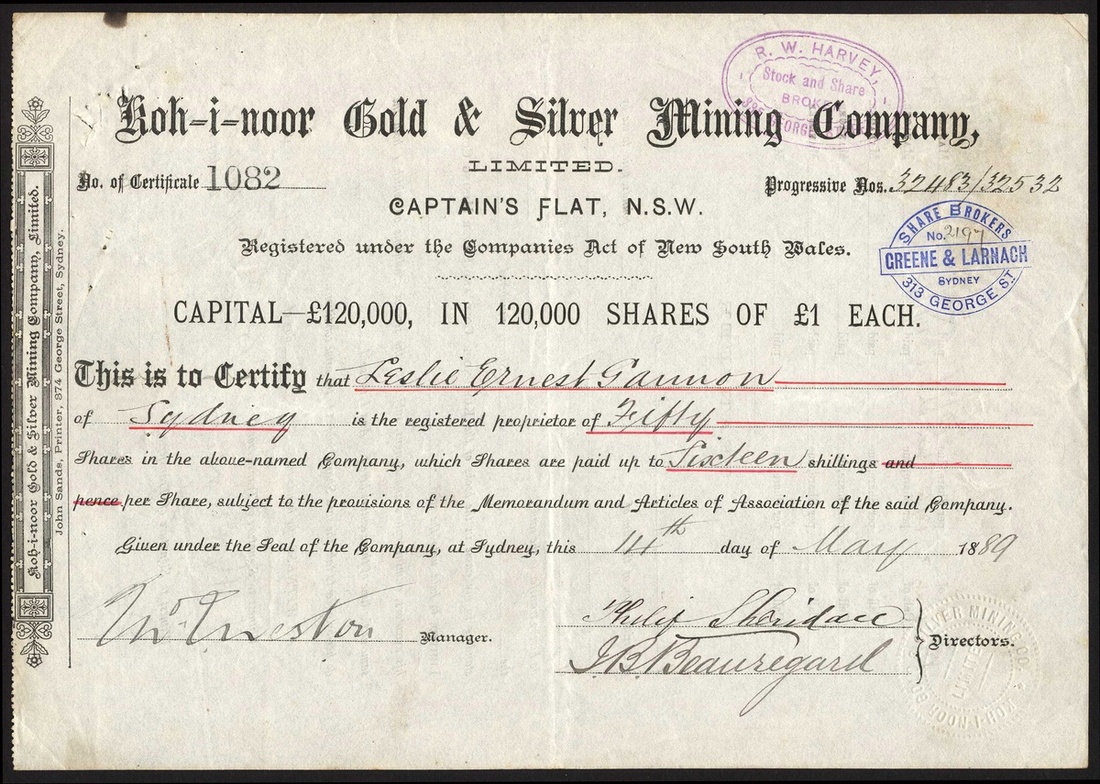 R. W. HARVEY,
Stock and Share
BROKER
GEORGE
Koh-i-noor Gold & Silver Mining Company,
LIMITED.
No. of Certificate 1082
Progressive Nos. 32483/32532
CAPTAIN'S FLAT, N.S.W.
Registered under the Companies Act of New South Wales.
SHARE BROKERS
No. 2197
GREENE & LARNACH
SYDNEY
313 GEORGE ST.
CAPITAL—£120,000, IN 120,000 SHARES OF £1 EACH.
This is to Certify that Leslie Ernest Gannon
of Sydney is the registered proprietor of Fifty
Shares in the above-named Company, which Shares are paid up to Sixteen shillings and
pence per Share, subject to the provisions of the Memorandum and Articles of Association of the said Company.
Given under the Seal of the Company, at Sydney, this 14th day of May 1889
Manager.
Philip Sheridan
J.B. Beauregard
Directors.
SILVER MINING CO.
LIMITED
KOH-I-NOOR
Koh-i-noor Gold & Silver Mining Company, Limited.
John Sands, Printer, 374 George Street, Sydney.